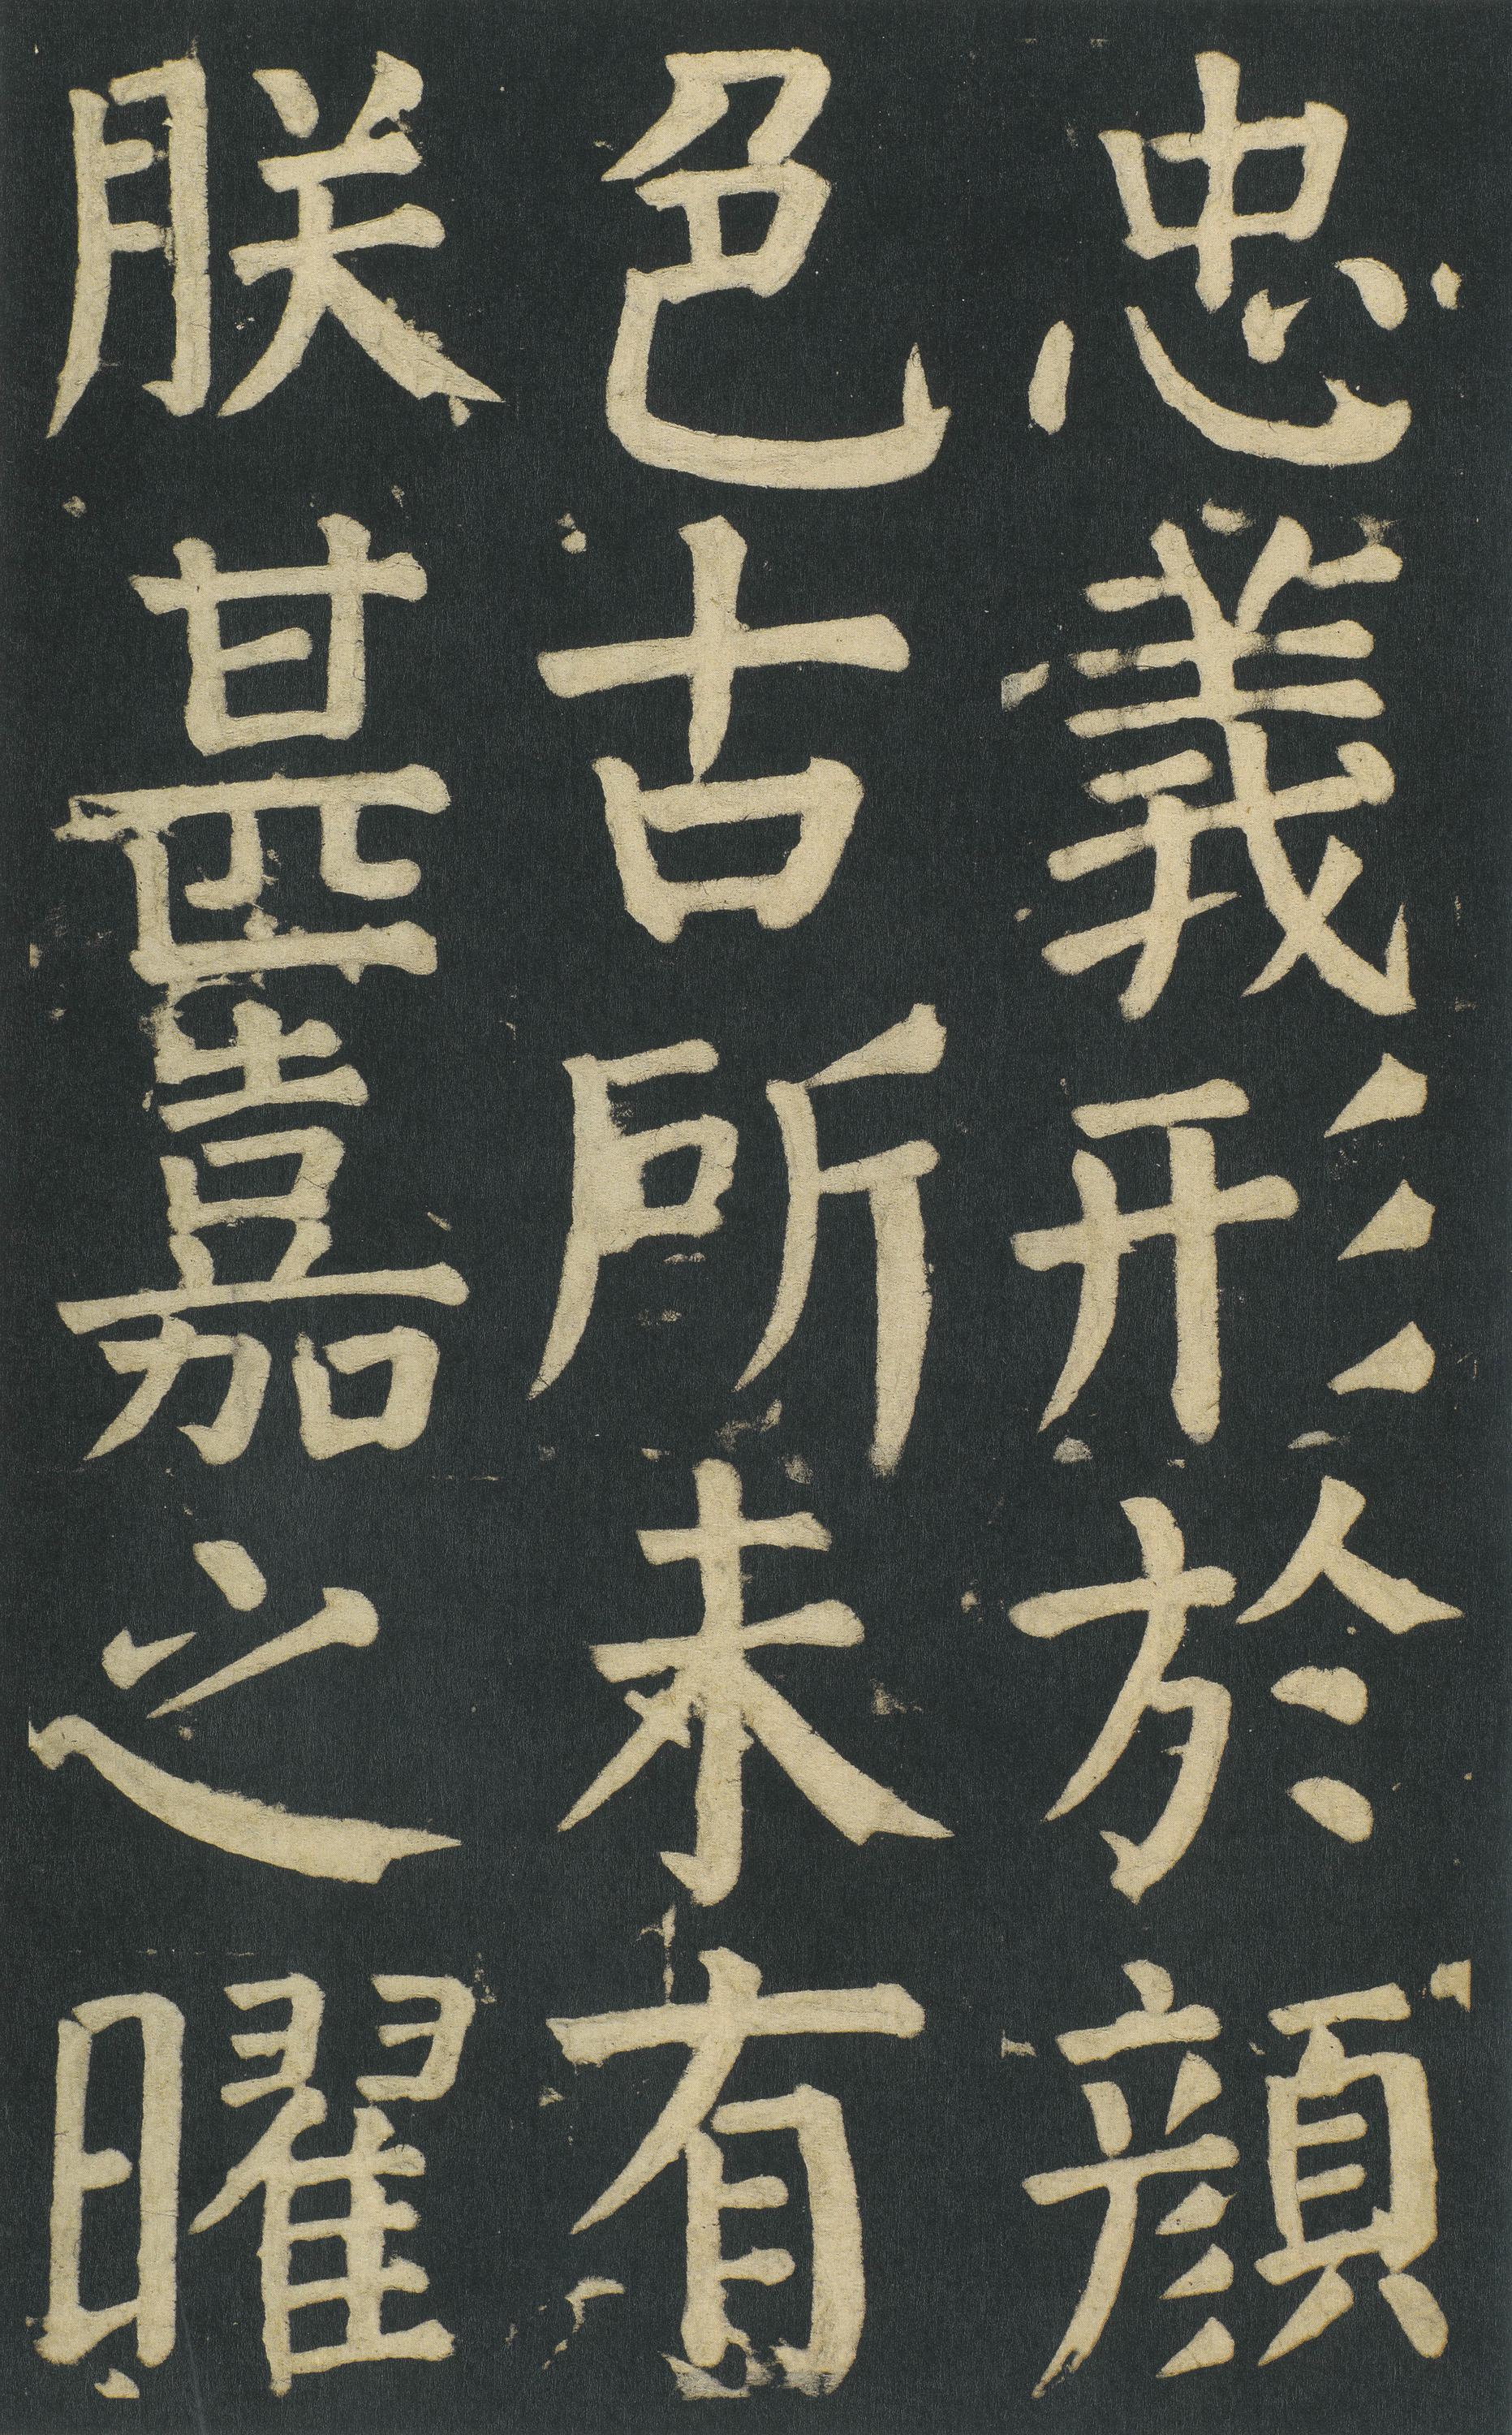 忠義形於顔
色古所未有
朕甚嘉之曜